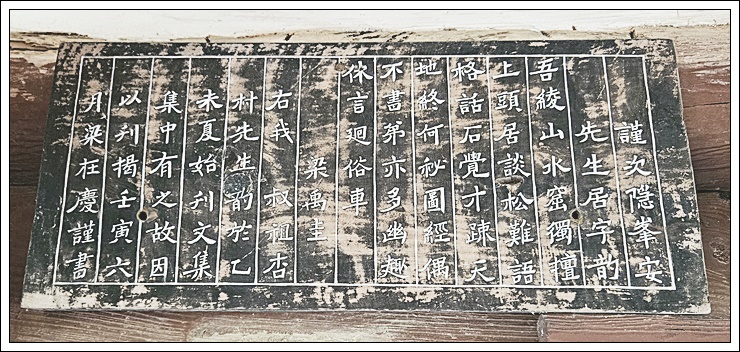 謹次隱峯安
先生居字韵
吾綾山水窟獨擅
上頭居談松難語
格話石覺才疎天
地終何秘圖經偶
不書第亦多幽趣
休言廻俗車
梁禹圭
右我 叔祖杏
村先生韵於乙
未夏始刋文集
集中有之故因
以刋揭壬寅六
月梁在慶謹書